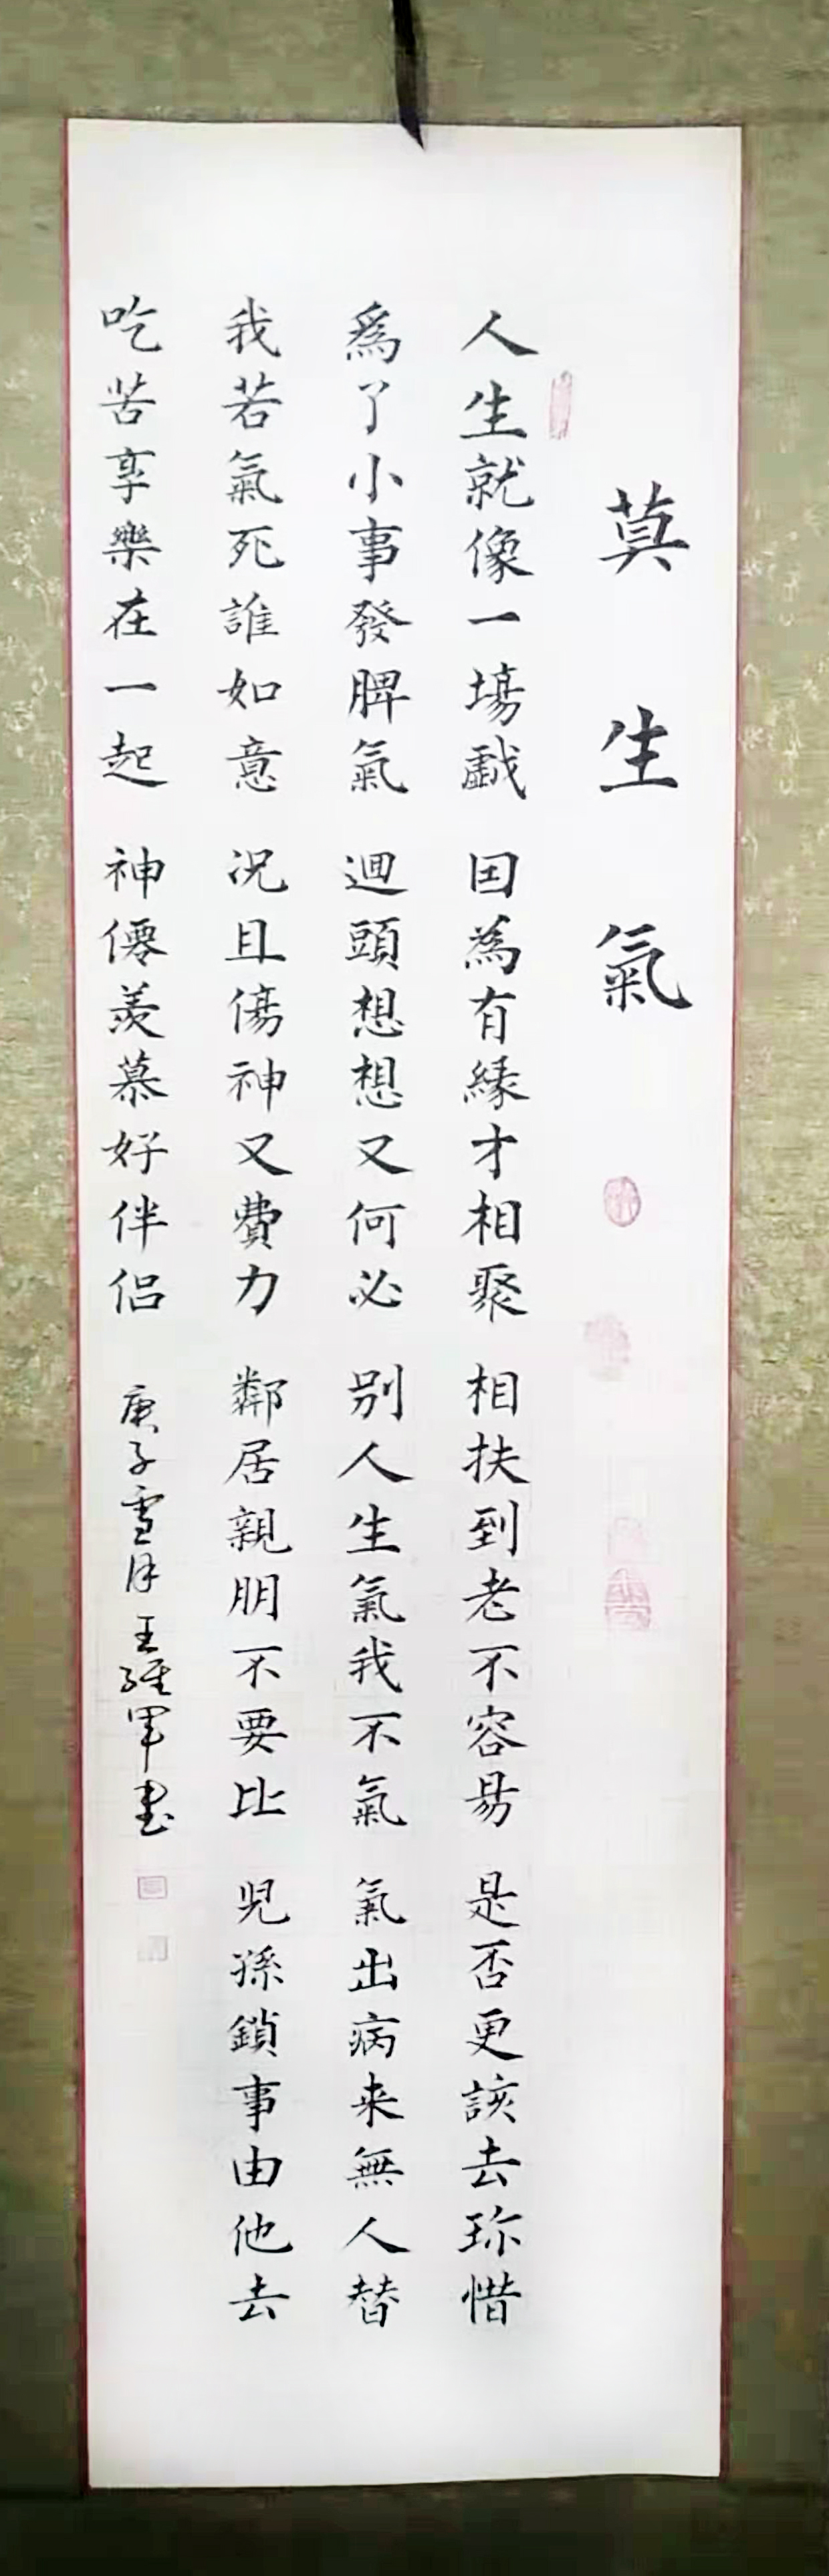 莫生氣
人生就像一場戲 因為有緣才相聚 相扶到老不容易 是否更該去珎惜
爲了小事發脾氣 迴頭想想又何必 别人生氣我不氣 氣出病来無人替
我若氣死誰如意 况且傷神又費力 鄰居親朋不要比 児孫鎖事由他去
吃苦享樂在一起 神僊羡慕好伴侣 庚子雪月王維軍书